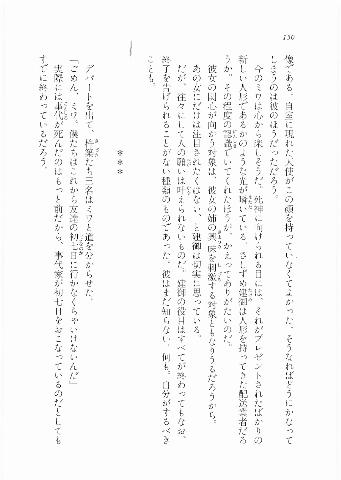 130
像である。自室に現れた天使がこの顔を持っていなくてよかった。そうなればどうにかなって
しまうのは彼のほうだっただろう。
今のミワは心から楽しそうだ。死神に向けられる目には、それがプレゼントされたばかりの
新しい人形であるかのような光が宿っている。さしずめ建御は人形を持ってきた配送業者だろ
うか。その程度の認識でいてくれたほうが、かえってありがたいのだ。
彼女の関心が向かう対象は、彼女の姉の興味を刺激する対象ともなりうるだろうから。
あの女にだけは注目されたくはない、と建御は切実に思っている。
だが、往々にして人の願いは叶えられないものだ。建御の役目はすべてが終わってもなお、
終了を告げられることがない種類のものであった。彼はまだ知らない。何も。自分がするべき
ことも。
＊＊＊
アパートを出て、 たち三名はミワと道を分からせた。
「ごめん、ミワ。僕たちはこれから友達の初七日に行かなくちゃいけないんだ」
実際には事代が死んだのはもっと前だから、事代家が初七日をおこなっているのだとしても
すでに終わっているだろう。